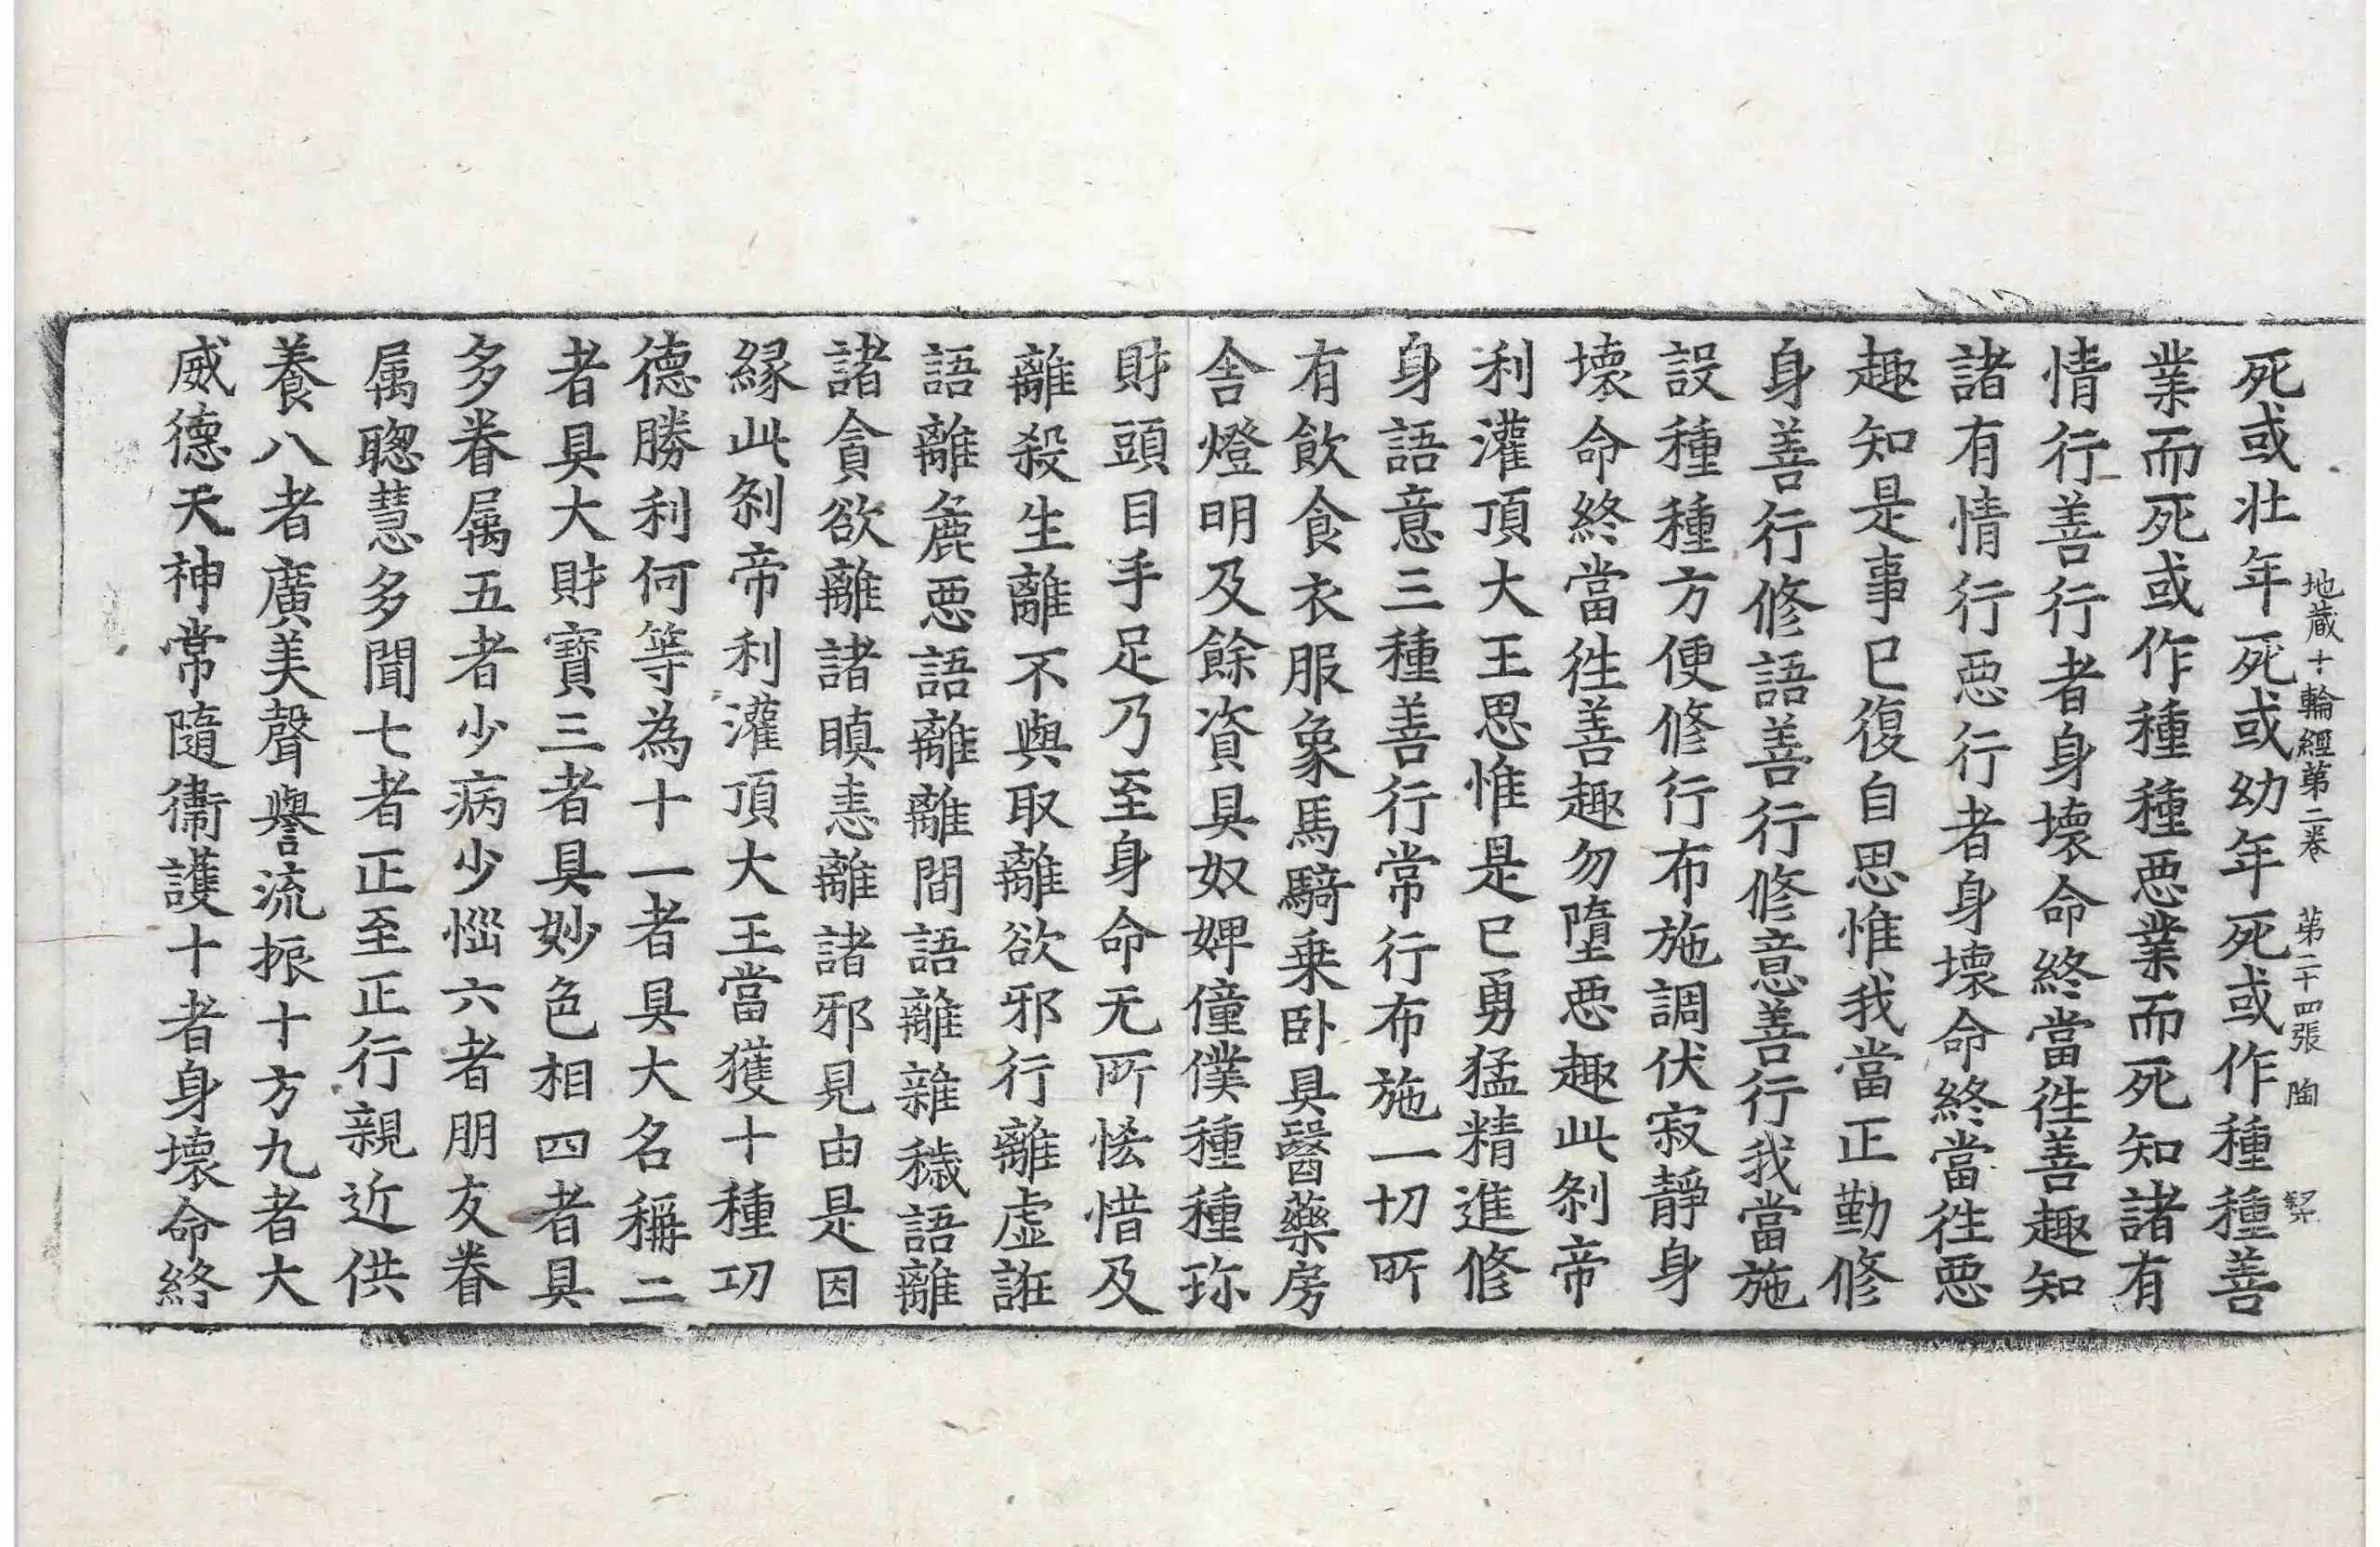 地蔵十輪經第二卷　第二十四張　陶
死或壮年死或幼年死或作種種善
業而死或作種種惡業而死知諸有
情行善行者身壞命終當往善趣知
諸有情行惡行者身壞命終當往惡
趣知是事已復自思惟我當正勤修
身善行修語善行修意善行我當施
設種種方便修行布施調伏寂靜身
壞命終當往善趣勿墮惡趣此剎帝
利灌頂大王思惟是已勇猛精進修
身語意三種善行常行布施一切所
有飲食衣服象馬騎乗卧具醫藥房
舎燈明及餘資具奴婢僮僕種種珎
財頭目手足乃至身命无所恡惜及
離殺生離不與取離欲邪行離虚誑
語離麁惡語離離間語離雜穢語離
諸貪欲離諸瞋恚離諸邪見由是因
縁此剎帝利灌頂大王當獲十種功
德勝利何等為十一者具大名稱二
者具大財寶三者具妙色相四者具
多眷属五者少病少惱六者朋友眷
属聰慧多聞七者正至正行親近供
養八者廣美聲譽流振十方九者大
威德天神常隨衞護十者身壞命終